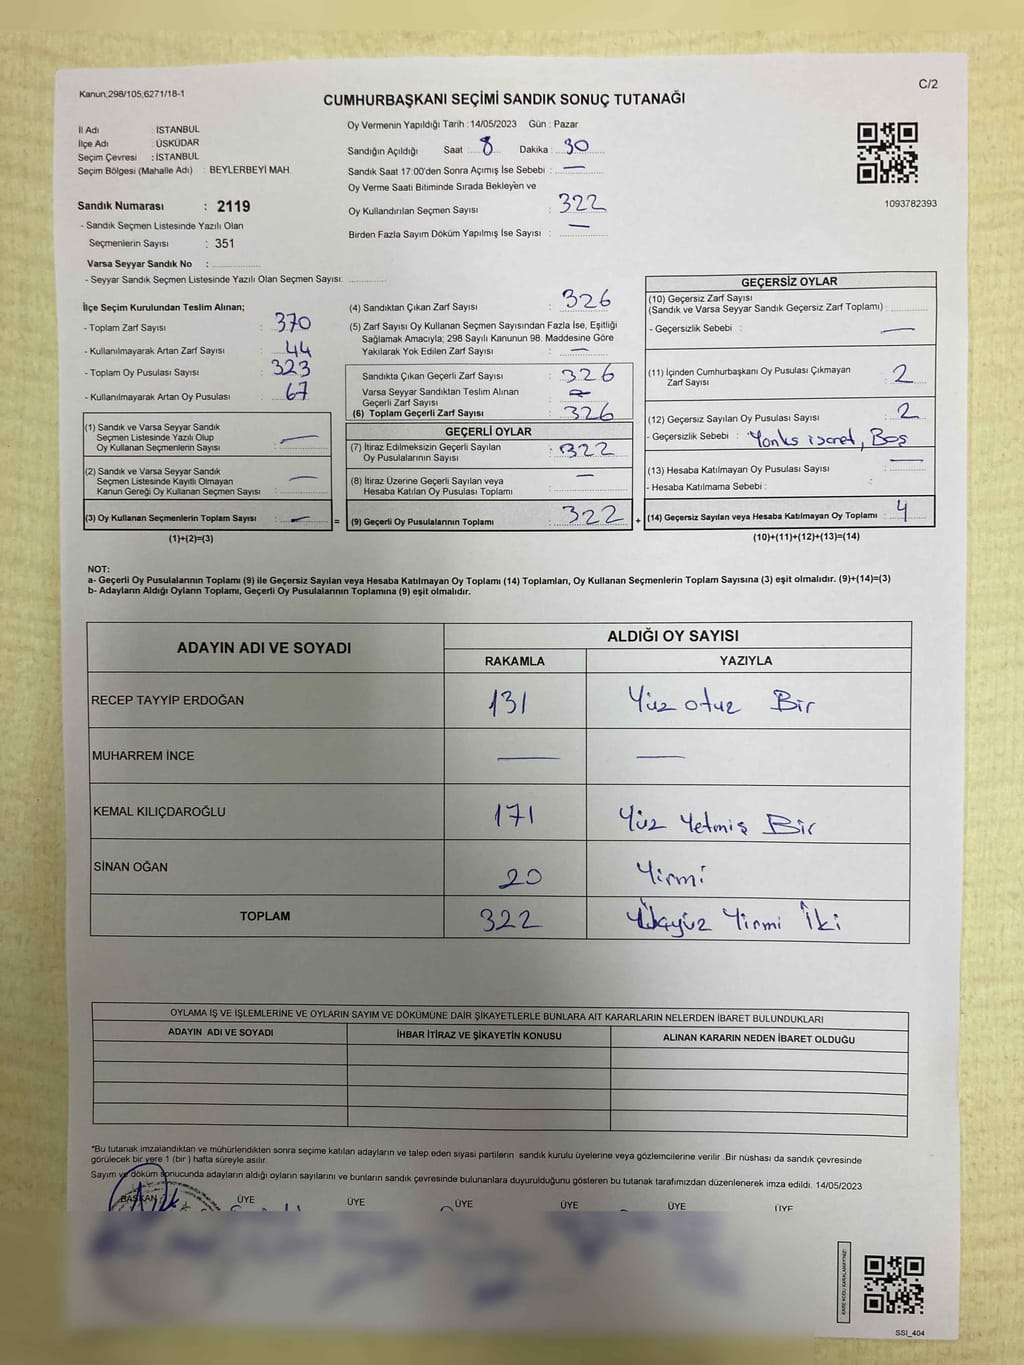 Kanun;298/105;6271/18-1
C/2
CUMHURBAŞKANI SEÇİMİ SANDIK SONUÇ TUTANAĞI
İl Adı : İSTANBUL
İlçe Adı : ÜSKÜDAR
Seçim Çevresi : İSTANBUL
Seçim Bölgesi (Mahalle Adı) : BEYLERBEYİ MAH.
Sandık Numarası : 2119
- Sandık Seçmen Listesinde Yazılı Olan
Seçmenlerin Sayısı : 351
Varsa Seyyar Sandık No :
- Seyyar Sandık Seçmen Listesinde Yazılı Olan Seçmen Sayısı:
Oy Vermenin Yapıldığı Tarih : 14/05/2023 Gün : Pazar
Sandığın Açıldığı Saat : 8 Dakika : 30
Sandık Saat 17:00'den Sonra Açımış İse Sebebi : —
Oy Verme Saati Bitiminde Sırada Bekleyen ve
Oy Kullandırılan Seçmen Sayısı : 322
Birden Fazla Sayım Döküm Yapılmış İse Sayısı : —
1093782393
İlçe Seçim Kurulundan Teslim Alınan;
- Toplam Zarf Sayısı : 370
- Kullanılmayarak Artan Zarf Sayısı : 44
- Toplam Oy Pusulası Sayısı : 323
- Kullanılmayarak Artan Oy Pusulası : 67
(1) Sandık ve Varsa Seyyar Sandık
Seçmen Listesinde Yazılı Olup
Oy Kullanan Seçmenlerin Sayısı : —
(2) Sandık ve Varsa Seyyar Sandık
Seçmen Listesinde Kayıtlı Olmayan
Kanun Gereği Oy Kullanan Seçmen Sayısı : —
(3) Oy Kullanan Seçmenlerin Toplam Sayısı : — =
(1)+(2)=(3)
(4) Sandıktan Çıkan Zarf Sayısı : 326
(5) Zarf Sayısı Oy Kullanan Seçmen Sayısından Fazla İse, Eşitliği
Sağlamak Amacıyla; 298 Sayılı Kanunun 98. Maddesine Göre
Yakılarak Yok Edilen Zarf Sayısı : —
Sandıkta Çıkan Geçerli Zarf Sayısı : 326
Varsa Seyyar Sandıktan Teslim Alınan
Geçerli Zarf Sayısı :
(6) Toplam Geçerli Zarf Sayısı : 326
GEÇERLİ OYLAR
(7) İtiraz Edilmeksizin Geçerli Sayılan
Oy Pusulalarının Sayısı : 322
(8) İtiraz Üzerine Geçerli Sayılan veya
Hesaba Katılan Oy Pusulası Toplamı : —
(9) Geçerli Oy Pusulalarının Toplamı : 322 +
GEÇERSİZ OYLAR
(10) Geçersiz Zarf Sayısı
(Sandık ve Varsa Seyyar Sandık Geçersiz Zarf Toplamı) :
- Geçersizlik Sebebi : —
(11) İçinden Cumhurbaşkanı Oy Pusulası Çıkmayan
Zarf Sayısı : 2
(12) Geçersiz Sayılan Oy Pusulası Sayısı : 2
- Geçersizlik Sebebi : Yanlış işaret, Boş
(13) Hesaba Katılmayan Oy Pusulası Sayısı : —
- Hesaba Katılmama Sebebi :
(14) Geçersiz Sayılan veya Hesaba Katılmayan Oy Toplamı : 4
(10)+(11)+(12)+(13)=(14)
NOT:
a- Geçerli Oy Pusulalarının Toplamı (9) ile Geçersiz Sayılan veya Hesaba Katılmayan Oy Toplamı (14) Toplamları, Oy Kullanan Seçmenlerin Toplam Sayısına (3) eşit olmalıdır. (9)+(14)=(3)
b- Adayların Aldığı Oyların Toplamı, Geçerli Oy Pusulalarının Toplamına (9) eşit olmalıdır.
ADAYIN ADI VE SOYADI ALDIĞI OY SAYISI
RAKAMLA YAZIYLA
RECEP TAYYİP ERDOĞAN 131 Yüz otuz Bir
MUHARREM İNCE — —
KEMAL KILIÇDAROĞLU 171 Yüz Yetmiş Bir
SİNAN OĞAN 20 Yirmi
TOPLAM 322 Üçyüz Yirmi İki
OYLAMA İŞ VE İŞLEMLERİNE VE OYLARIN SAYIM VE DÖKÜMÜNE DAİR ŞİKAYETLERLE BUNLARA AİT KARARLARIN NELERDEN İBARET BULUNDUKLARI
ADAYIN ADI VE SOYADI İHBAR İTİRAZ VE ŞİKAYETİN KONUSU ALINAN KARARIN NEDEN İBARET OLDUĞU
*Bu tutanak imzalandıktan ve mühürlendikten sonra seçime katılan adayların ve talep eden siyasi partilerin sandık kurulu üyelerine veya gözlemcilerine verilir .Bir nüshası da sandık çevresinde
görülecek bir yere 1 (bir ) hafta süreyle asılır.
Sayım ve döküm sonucunda adayların aldığı oyların sayılarını ve bunların sandık çevresinde bulunanlara duyurulduğunu gösteren bu tutanak tarafımızdan düzenlenerek imza edildi. 14/05/2023
BAŞKAN ÜYE ÜYE ÜYE ÜYE ÜYE ÜYE
KARE KODU KARALAMAYINIZ!
SSI_404